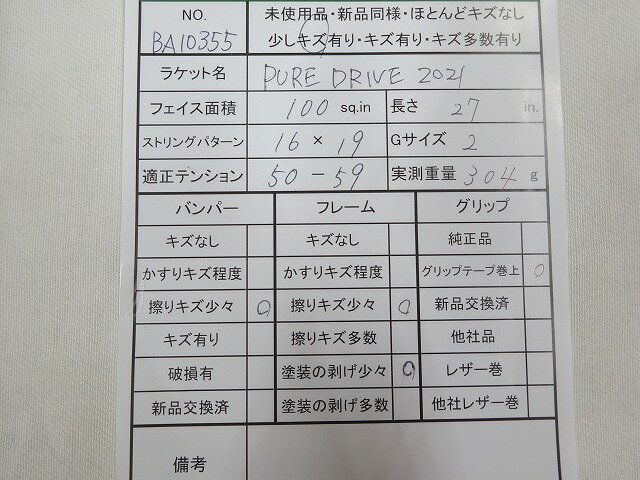 NO. 未使用品・新品同様・ほとんどキズなし
BA10355 少しキズ有り・キズ有り・キズ多数有り
ラケット名 PURE DRIVE 2021
フェイス面積 100 sq.in 長さ 27 in.
ストリングパターン 16 × 19 Gサイズ 2
適正テンション 50-59 実測重量 304 g
バンパー フレーム グリップ
キズなし キズなし 純正品
かすりキズ程度 かすりキズ程度 グリップテープ巻上 ○
擦りキズ少々 ○ 擦りキズ少々 ○ 新品交換済
キズ有り 擦りキズ多数 他社品
破損有 塗装の剥げ少々 ○ レザー巻
新品交換済 塗装の剥げ多数 他社レザー巻
備考